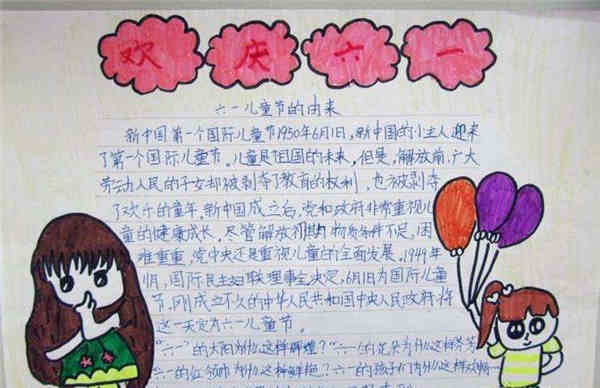 欢庆六一
六一儿童节的由来
新中国第一个国际儿童节1950年6月1日,新中国的小主人迎来
了第一个国际儿童节。儿童是祖国的未来,但是,解放前,广大
劳动人民的子女却被剥夺了教育的权利,也被剥夺
了欢乐的童年。新中国成立之后,党和政府非常重视儿
童的健康成长。尽管解放初期物质条件不足,困
难重重,党中央还是重视儿童的全面发展。1949年
11月,国际民主妇联理事会决定,6月1日为国际儿童
节。刚成立不久的中华人民共和国中央人民政府将
这一天定为六一儿童节。
"六一"的太阳为什么这样辉煌?"六一"的花朵为什么这样芬芳
六一的红领巾为什么这样鲜艳?六一的孩子们为什么这样欢畅